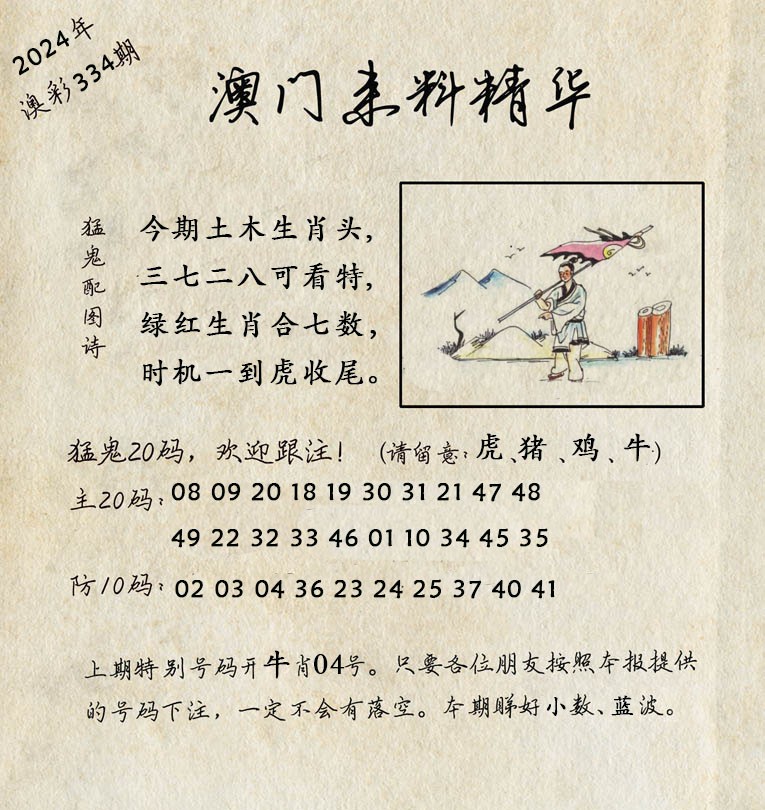 2024年
澳彩334期
澳门来料精华
猛鬼配图诗
今期土木生肖头，
三七二八可看特，
绿红生肖合七数，
时机一到虎收尾。
猛鬼20码，欢迎跟注！（请留意：虎、猪、鸡、牛）
主20码：08 09 20 18 19 30 31 21 47 48
49 22 32 33 46 01 10 34 45 35
防10码：02 03 04 36 23 24 25 37 40 41
上期特别号码开牛肖04号。只要各位朋友按照本报提供
的号码下注，一定不会有落空。本期睇好小数、蓝波。